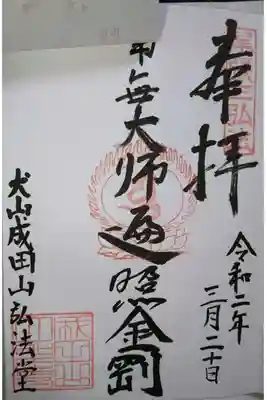 奉拝
令和二年
三月二十日
南無大师遍照金剛
犬山成田山弘法堂